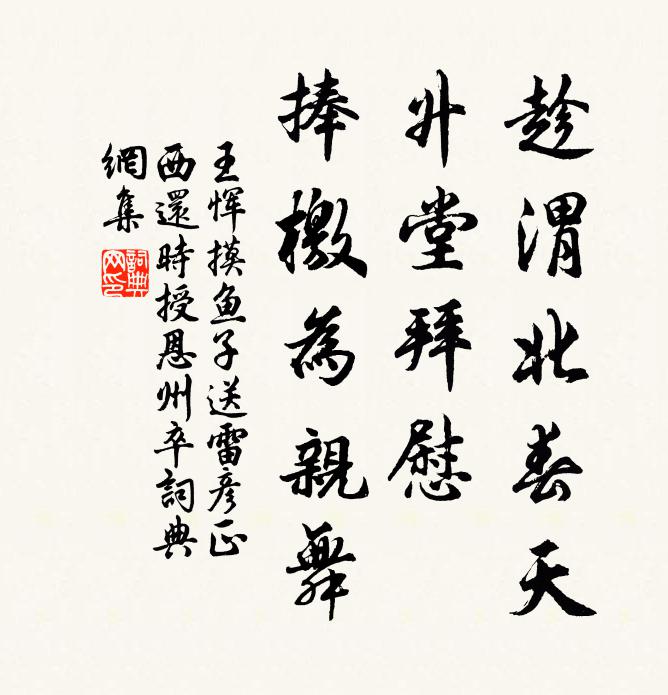 趁渭北春天
升堂拜慰
捧檄為親舞
王惲摸魚子送雷彥正
西還時授恩州卒詞典
網集
詞典網印